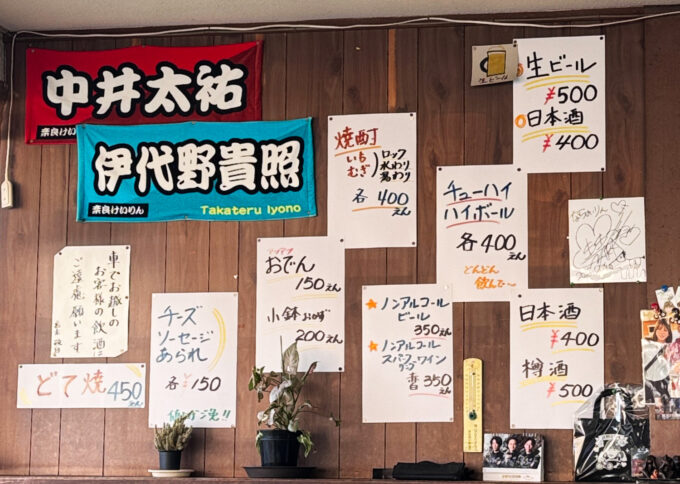 中井太祐
奈良けいりん
伊代野貴照
奈良けいりん
Takateru Iyono
生ビール
生ビール
¥500
日本酒
¥400
焼酎
いも
むぎ
ロック
水わり
湯わり
各 400
えん
チューハイ
ハイボール
各400
えん
どんどん
飲んで〜
アツアツ
おでん
150えん
小鉢
200えん
ノンアルコール
ビール
350えん
ノンアルコール
350
えん
日本酒
¥400
樽酒
¥500
車でお越しの
お客様の飲酒は
ご遠慮願います
どて焼 450
えん
チーズ
ソーセージ
あられ
各 ¥150